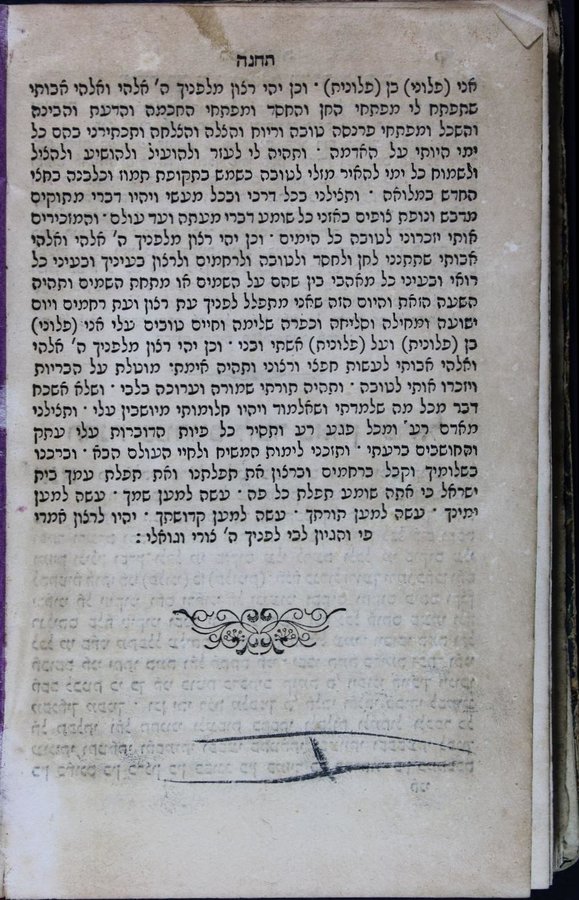 תחנה
אני (פלוני) בן (פלונית) · וכן יהי רצון מלפניך ה' אלהי ואלהי אבותי
שתפתח לי מפתחי החן והחסד ומפתחי החכמה והדעת והבינה
והשכל ומפתחי פרנסה טובה וריוח והצלה והצלחה ותכתירני בהם כל
ימי היותי על האדמה · ותהיה לי לעזר ולהועיל ולהושיע ולהציל
ולשמוח כל ימי להאיר מזלי לטובה כשמש בתקופת תמוז וכלבנה בחצי
החדש במלואה · ותצילני בכל דרכי ובכל מעשי ויהיו דברי מתוקים
מדבש ונופת צופים באזני כל שומע דברי מעתה ועד עולם · והמזכירים
אותי יזכרוני לטובה כל הימים · וכן יהי רצון מלפניך ה' אלהי ואלהי
אבותי שתתנני לחן ולחסד ולטובה ולרחמים ולרצון בעיניך ובעיני כל
רואי ובעיני כל מאהבי בין שהם על השמים או מתחת השמים ותהיה
השעה הזאת והיום הזה שאני מתפלל לפניך עת רצון ועת רחמים ויום
ישועה ומחילה וסליחה וכפרה שלימה וחיים טובים עלי אני (פלוני)
בן (פלונית) ועל (פלונית) אשתי ובני · וכן יהי רצון מלפניך ה' אלהי
ואלהי אבותי לעשות חפצי ורצוני ותהיה אימתי מוטלת על הבריות
ויזכרו אותי לטובה · ותהיה תורתי שמורה וערוכה בלבי · ושלא אשכח
דבר מכל מה שלמדתי ושאלמוד ויהיו חלומותי מיושבין עלי · ותצילני
מאדם רע ומכל פגע רע ותסיר כל פיות הדוברות עלי עתק
והחושבים ברעתי · ותזכני לימות המשיח ולחיי העולם הבא · וברכנו
בשלומיך וקבל ברחמים וברצון את תפלתנו ואת תפלת עמך בית
ישראל כי אתה שומע תפלת כל פה · עשה למען שמך · עשה למען
ימינך · עשה למען תורתך · עשה למען קדושתך · יהיו לרצון אמרי
פי והגיון לבי לפניך ה' צורי וגואלי :